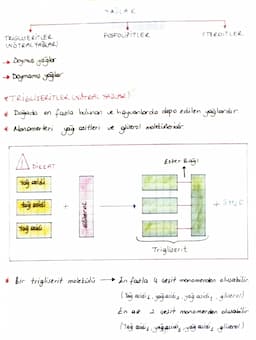 YAĞLAR
TRİGLİSERİTLER FOSFOLİPİTLER STEROİTLER
(NÖTRAL YAĞLAR)
→ Doymuş yağlar
→ Doymamış yağlar
TRİGLİSERİTLER (NÖTRAL YAĞLAR)
Doğada en fazla bulunan ve hayvanlarda depo edilen yağlardır.
Monomerleri yağ asitleri ve gliserol molekülleridir
! DİKKAT
Ester Bağı
Yağ asidi
Yağ asidi
Yağ asidi
Gliserol
+ 3H₂O
Trigliserit
Bir trigliserit molekülü → En fazla 4 çeşit monomerden oluşabilir
(Yağ asidi₁, yağ asidi₂, yağ asidi₃, gliserol)
En az 2 çeşit monomerden oluşabilir
(Yağ asidi₁, yağ asidi₁, yağ asidi₁, gliserol)